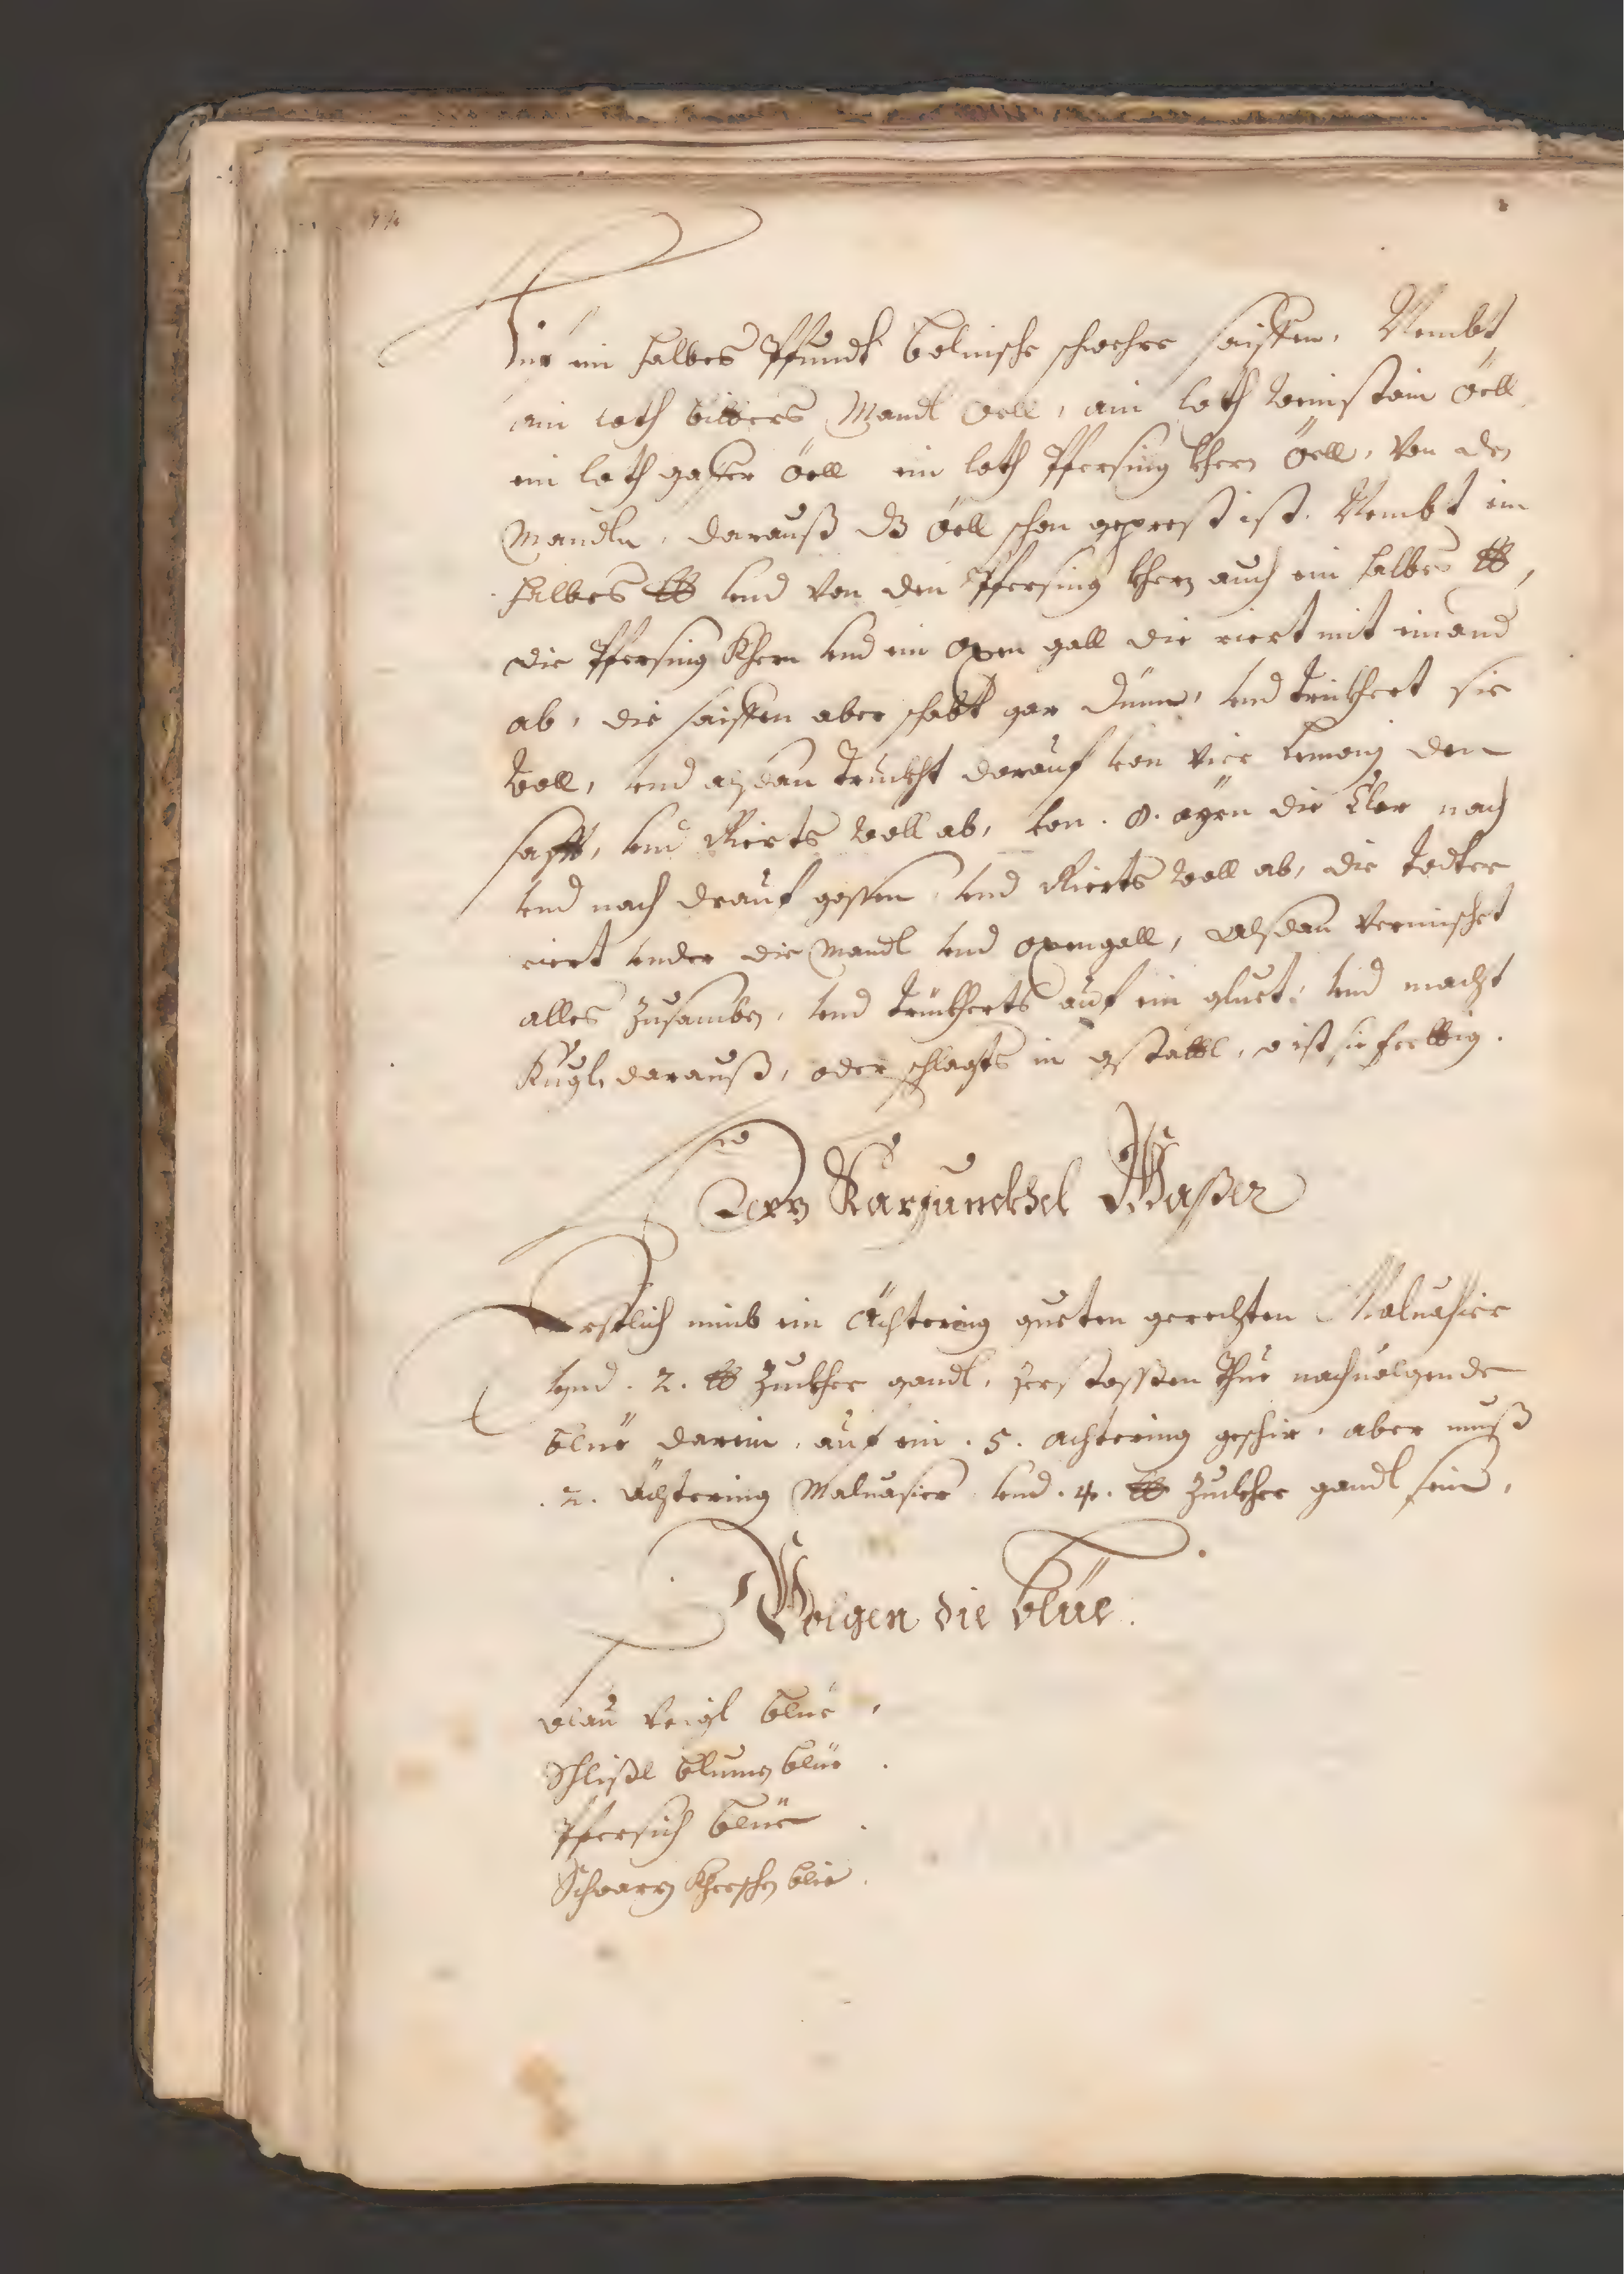 Für ein halbes Pfundt bolnische schwehre saiffen, Nembt
ain loth bitters Mandl öell, ain loth weinstain öell
ein loth öell ein loth Pfersing khern öell, Von den
Mandln, darauß dz öell schon geprest ist. Nembt ein
halbes ℔ vnd von den Pfersing khern auch ein halbes ℔,
die Pfersing Khern vnd ein oxen gall die riert mit einand
ab, die saiffen aber schabt gar dünn, vnd trückhert sie
woll, vnd alsdan truckht darauf von vier lemonj den
safft, vnd Rierts woll ab, von . 8. ayrn die Clar nach
vnd nach drauf gossen, vnd Rierts woll ab, die todter
riert vnder die Mandl vnd oxengall, Alsdan vermischet
alles zusamben, vnd trückherts auf ein gluet, vnd macht
Kugln darauß, oder schlagts in gstattl, so ist sie ferttig.
Karfunckhel Waßer
Erstlich nimb ein Achtering gueten gerechten Maluasier
vnd . 2. ℔ Zuckher gandl, zerstossen thue nachuolgende
blüe darein, auf ein . 5. achtering geschir, aber muß
. 2. Achtering Maluasier vnd . 4. ℔ Zuckher gandl sein,
Volgen die blüe.
Blau Veigl blüe,
Schlißl blumen blüe.
Pfersich blüe.
Schwarz Kherschen blüe.